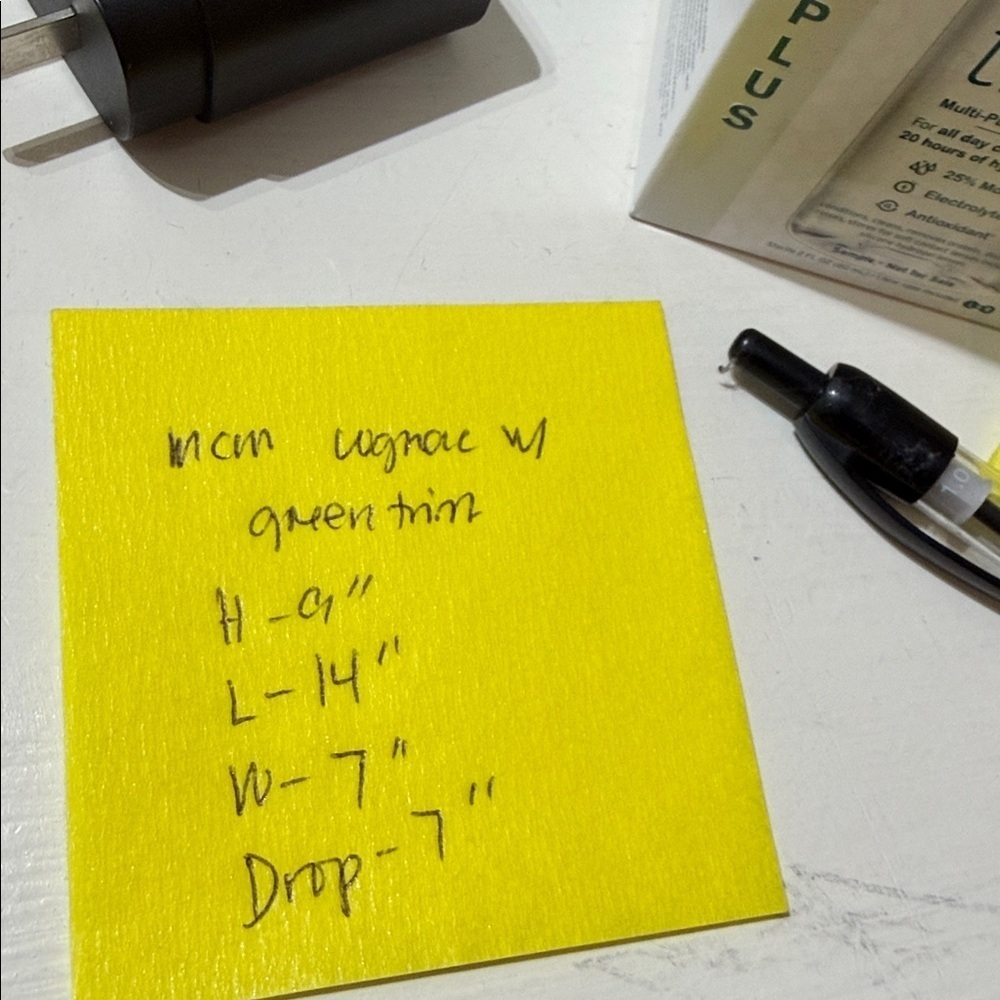 PLUS
Multi-P
For all day c
20 hours of h
25% Mo
Electrolyt
Antioxidant
Sample - Not for Sale
1.0
mcm cognac w/
green trim
H - 9"
L - 14"
W - 7"
Drop - 7"